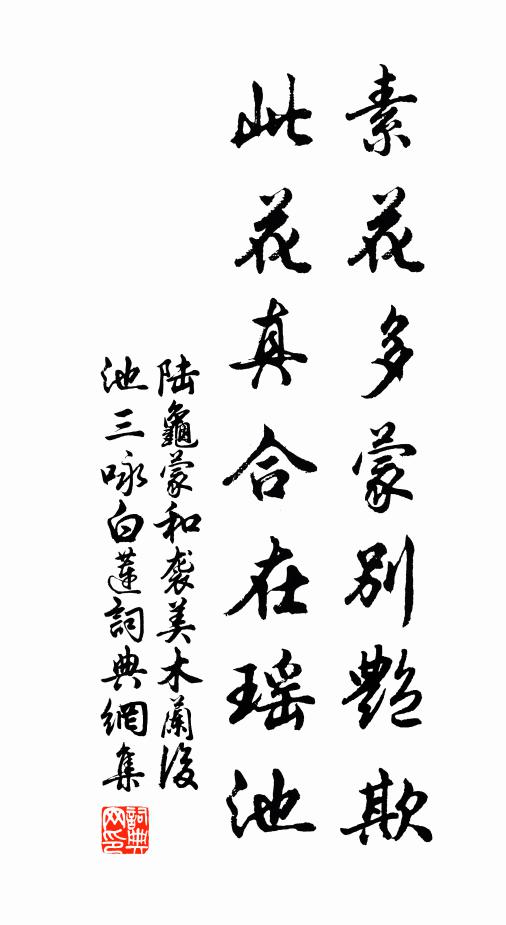 素花多蒙別艷欺
此花真合在瑶池
陆龜蒙和袭美木蘭後
池三咏白蓮詞典網集
詞典
网印